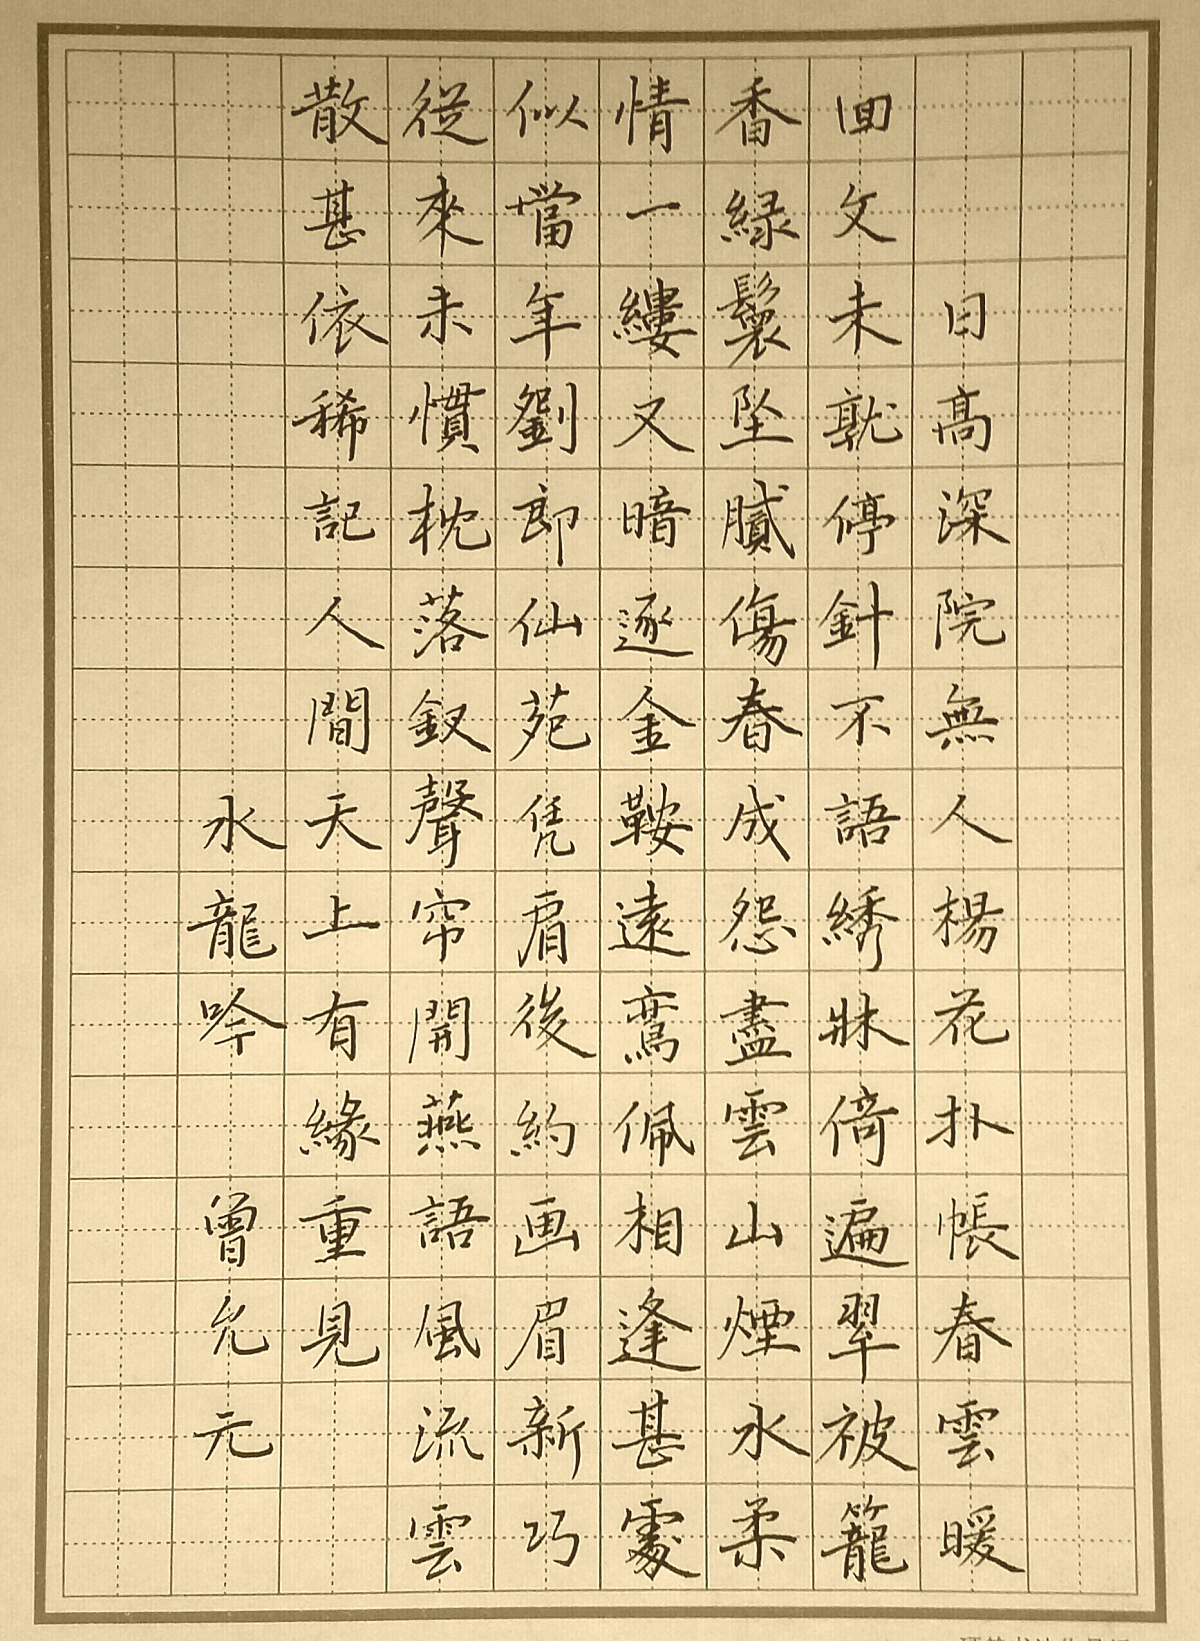 日高深院無人楊花扑帳春雲暖
回文未就停針不語綉牀倚遍翠被籠
香緑鬟墜膩傷春成怨盡雲山煙水柔
情一縷又暗逐金鞍遠鸞佩相逢甚處
似當年劉郎仙苑凭肩後約画眉新巧
從來未慣枕落釵聲帘開燕語風流雲
散甚依稀記人間天上有緣重見
水龍吟 曾允元